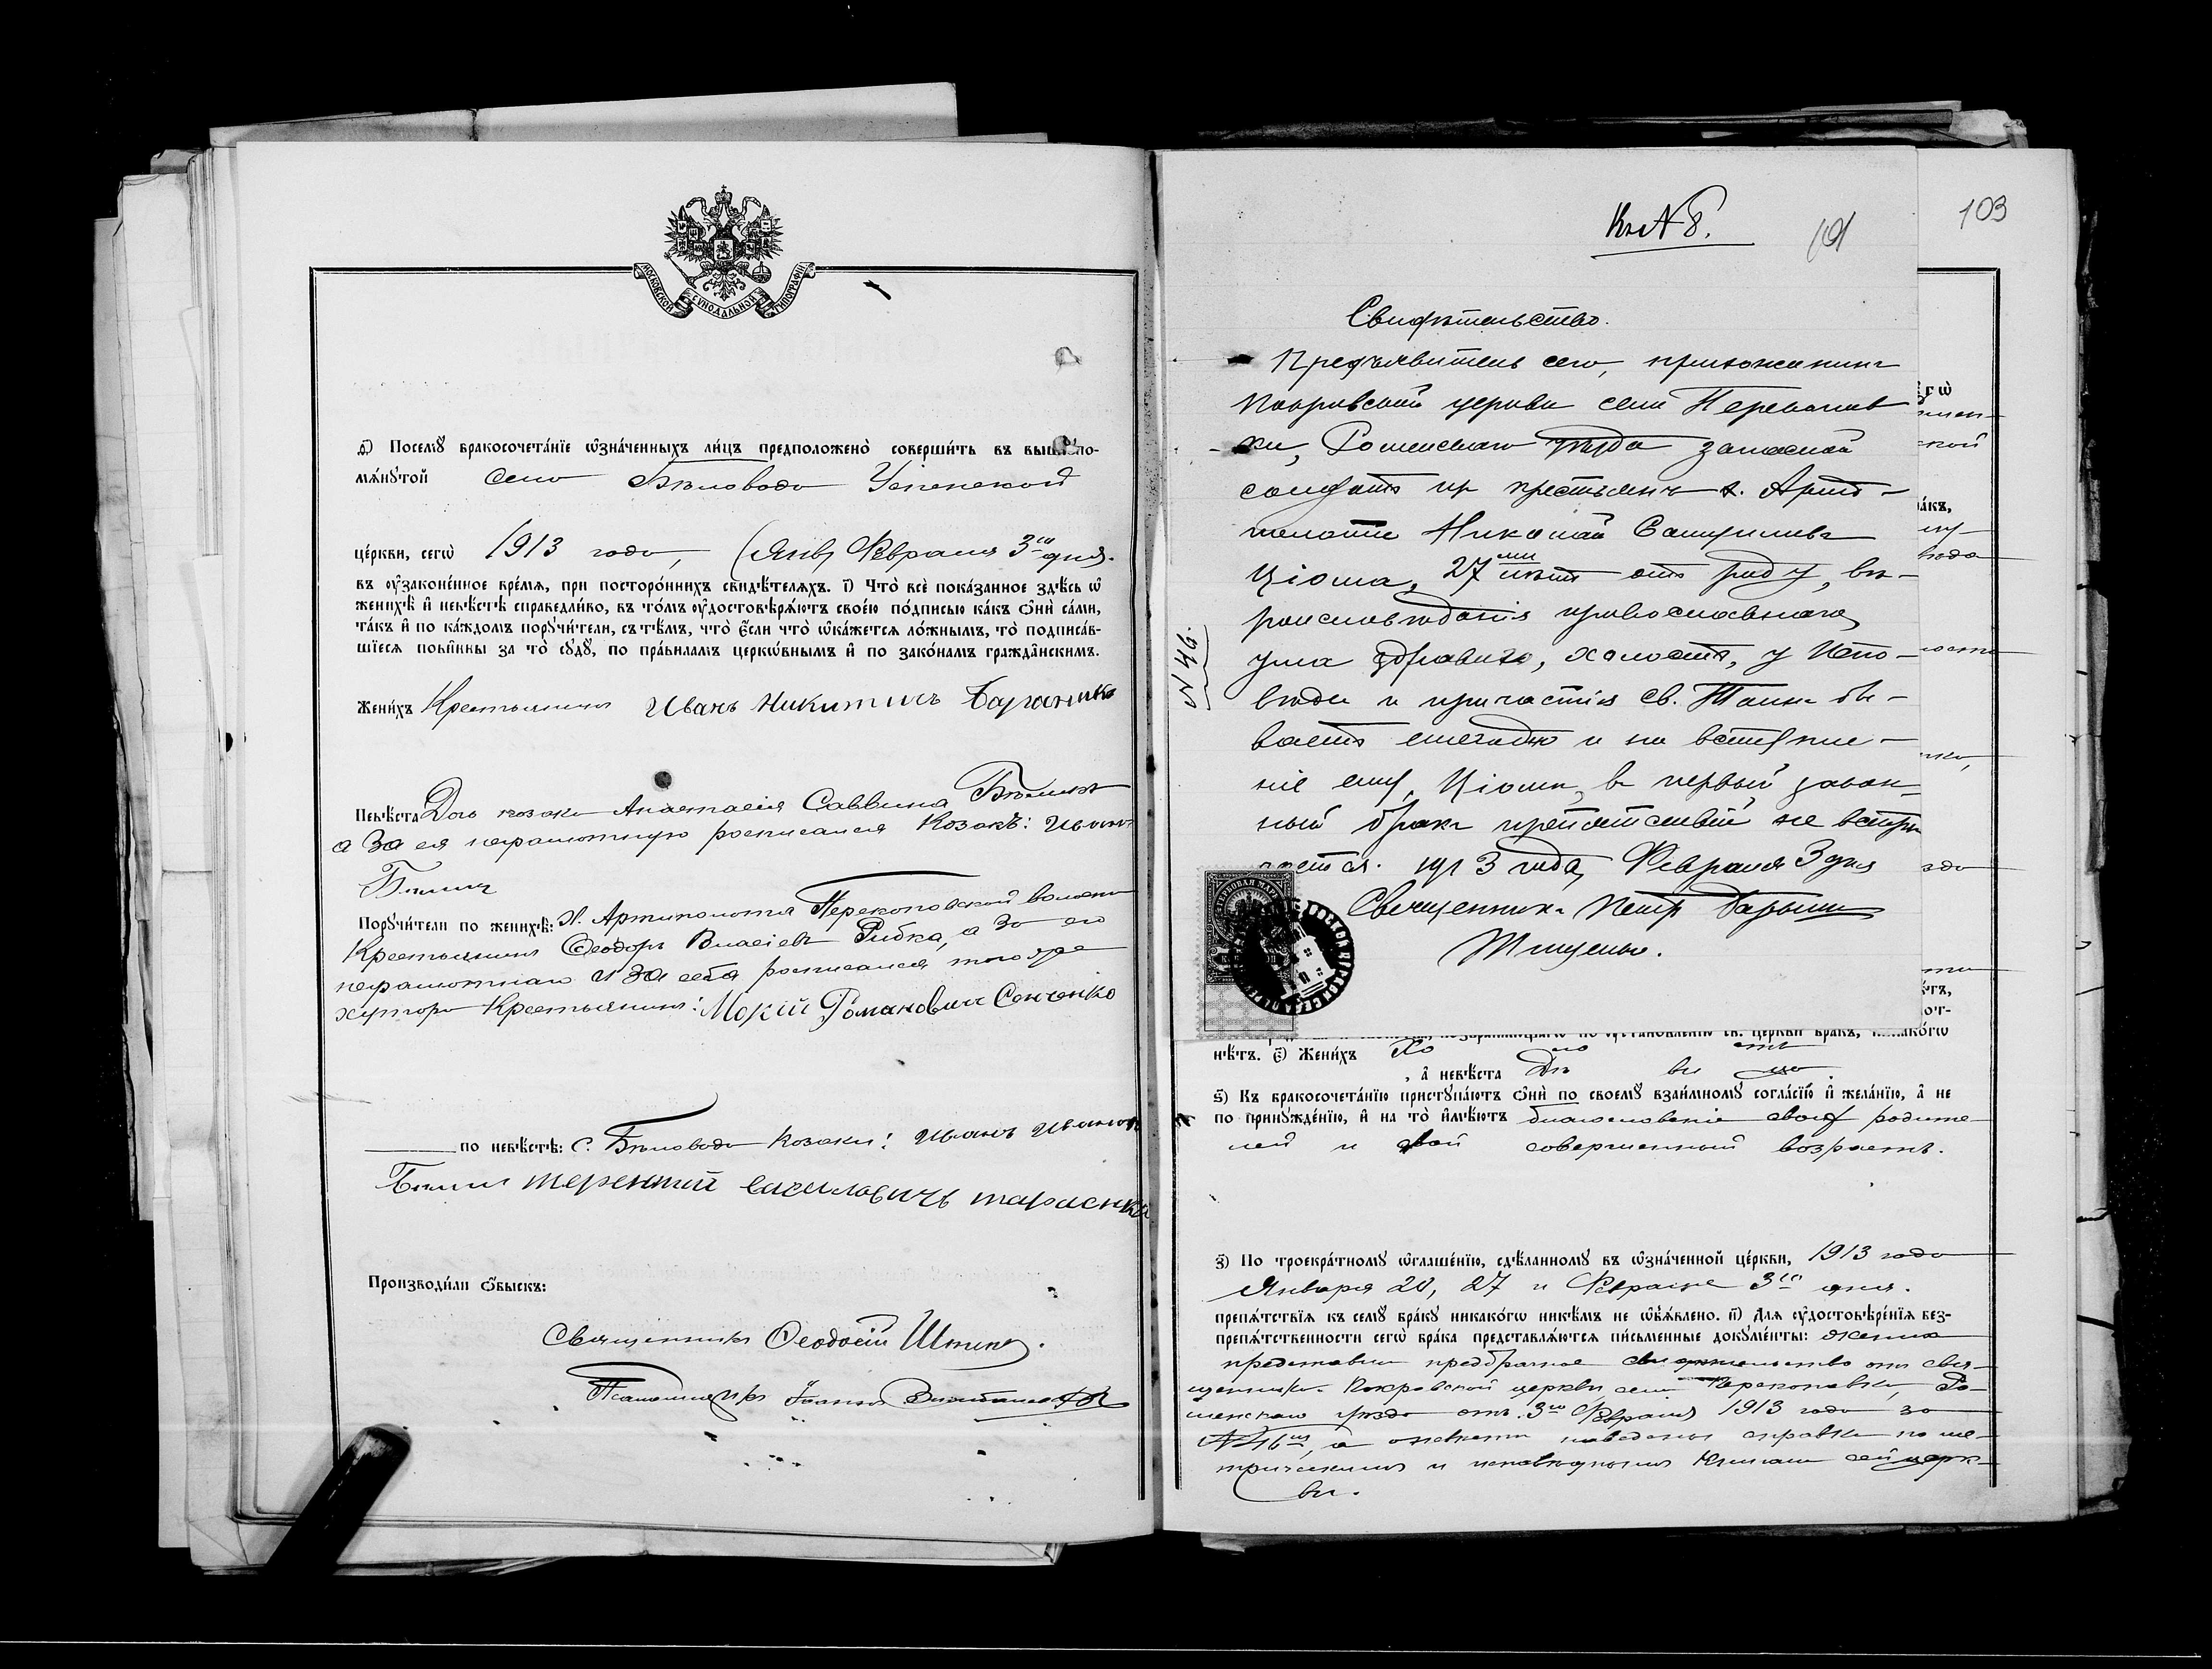 МОСКОВСКОЙ СѴНОДАЛЬНОЙ ТИПОГРАФІИ
д҃) Посемꙋ̀ бракосочета́нїе ѡ҆зна́ченныхъ ли́цъ предположено̀ соверши́ть въ вышепо-
мѧ́нꙋтой село Бѣловодъ Успенской
це́ркви, сегѡ̀ 1913 года, Февраля 3го дня.
въ ᲂу҆зако́ненное вре́мѧ, при посторо́ннихъ свидѣ́телѧхъ. і҃) Что̀ всѐ пока́занное здѣ́сь ѡ҆
женихѣ̀ и҆ невѣ́стѣ справедли́во, въ то́мъ ᲂу҆достовѣрѧ́ютъ свое́ю по́дписью ка́къ ѻ҆нѝ са́ми,
та́къ и҆ по ка́ждомъ порꙋчи́тели, съ тѣ́мъ, что̀ є҆́сли что̀ ѡ҆ка́жетсѧ ло́жнымъ, то̀ подписа́в-
шїесѧ пови́нны за то̀ сꙋдꙋ̀, по пра́виламъ церкѡ́внымъ и҆ по зако́намъ гражда̑нскимъ.
Жени́хъ Крестьянинъ Иванъ Никитичъ
Невѣ́ста Дочь козака Анастасія Саввина
а за ея неграмотную росписался Козакъ: Иванъ
Порꙋчи́тели по женихѣ̀: Х. Артиполота Перекоповской волости
Крестьянинъ Ѳеодоръ Власіевъ Рибка, а за его
неграмотнаго и за себя росписался того же
хутора Крестьянинъ: Мокій Романовичъ Сенченко
по невѣ́стѣ: С. Бѣловода Козаки: Иванъ Ивановъ
Терентій
Производи́ли ѻ҆́быскъ:
Священникъ Ѳеодосій
Псаломщикъ Іоаннъ
Къ № 8.
101
103
Свидѣтельство.
Предъявитель сего, прихожанинъ
Покровской церкви села Перекопов-
ки, Роменскаго уѣзда запасной
солдатъ изъ крестьянъ х. Арти-
полота Николай
Ціома, 27 ми лѣтъ отъ роду, вѣ-
роисповѣданія православнаго,
ума здраваго, холостъ, у Испо-
вѣди и причастія Св. Таинъ бы-
ваетъ ежегодно и на вступле-
ніе ему, Ціомѣ, въ первый закон-
ный бракъ препятствій не встрѣ
чается. 1913 года, Февраля 3 дня
Священникъ Петръ
Тищенко.
№ 46.
нѣ́тъ. є҃) Жени́хъ Хо ло стъ
, а҆ невѣ́ста Дѣ ви ца.
ѕ҃) Къ бракосочета́нїю пристꙋпа́ютъ ѻ҆нѝ по своемꙋ̀ взаи́мномꙋ согла́сїю и҆ жела́нїю, а҆ не
по принꙋжде́нїю, и҆ на то̀ и҆мѣ́ютъ благословеніе своихъ родите-
лей и свой совершенный возрастъ.
з҃) По троекра́тномꙋ ѡ҆глаше́нїю, сдѣ́ланномꙋ въ ѡ҆зна́ченной це́ркви, 1913 года
Января 20, 27 и Февраля 3го дня.
препѧ́тствїѧ къ семꙋ̀ бра́кꙋ никако́гѡ никѣ́мъ не ѡ҆б̾ѧ́влено. и҃) Длѧ ᲂу҆достовѣре́нїѧ без-
препѧ́тственности сегѡ̀ бра́ка представлѧ́ютсѧ пи́сьменные докꙋме́нты: женихъ
представилъ предбрачное свидѣтельство отъ свя-
щенника Покровской церкви села Перекоповки, Ро-
менскаго уѣзда отъ 3го Февраля 1913 года за
№ 46мъ, а о невѣстѣ наведены справки по ме-
трическимъ и исповѣднымъ книгамъ сей церк-
ви.